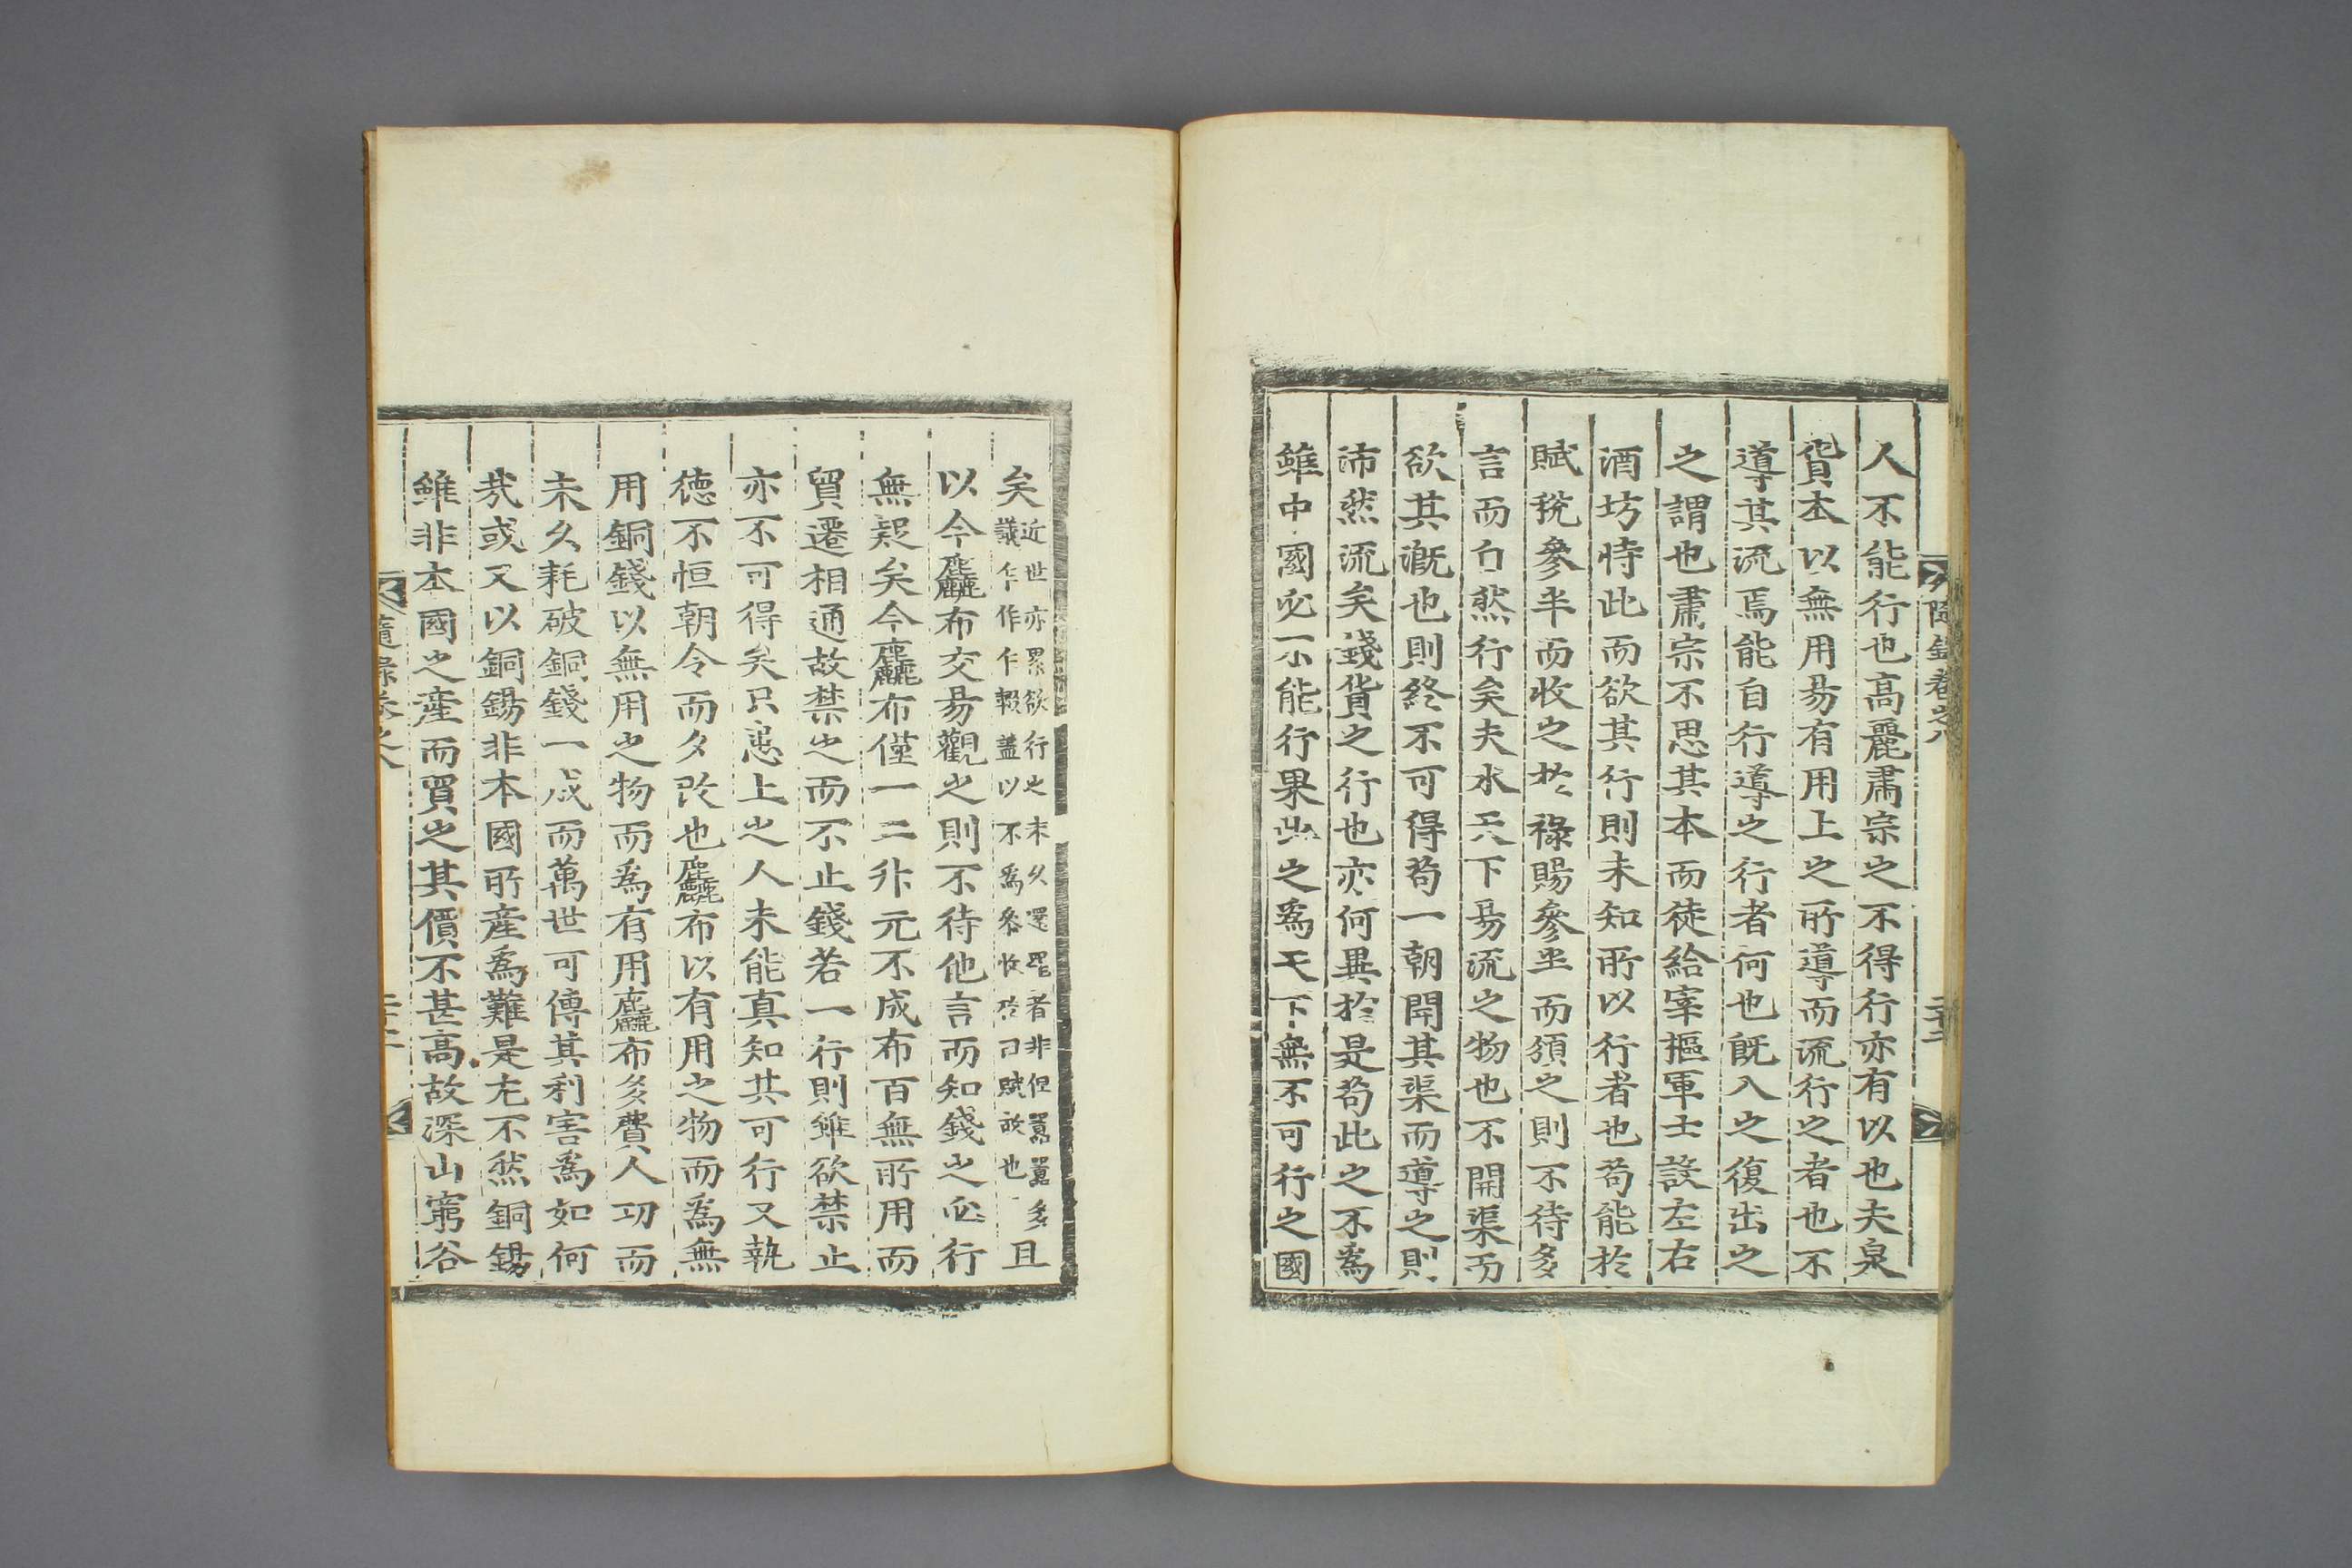 人不能行也高麗肅宗之不得行亦有以也夫泉
貨本以無用易有用上之所導而流行之者也不
導其流焉能自行導之行者何也旣入之復出之
之謂也肅宗不思其本而徒給宰樞軍士設左右
酒坊恃此而欲其行則未知所以行者也苟能於
賦稅參半而收之於祿賜參半而頒之則不待多
言而自然行矣夫水天下易流之物也不開渠而
欲其漑也則終不可得苟一朝開其渠而導之則
沛然流矣錢貨之行也亦何異於是苟此之不爲
雖中國必不能行果此之爲天下無不可行之國
隨錄卷之八
矣近世亦累欲行之未久還罷者非但囂囂多
議乍作乍輟蓋以不爲參收於日賦故也且
以今麤布交易觀之則不待他言而知錢之必行
無疑矣今麤布僅一二升元不成布百無所用而
貿遷相通故禁之而不止錢若一行則雖欲禁止
亦不可得矣只患上之人未能真知其可行又執
德不恒朝令而夕改也麤布以有用之物而爲無
用銅錢以無用之物而爲有用麤布多費人功而
未久耗破銅錢一成而萬世可傳其利害爲如何
哉或又以銅錫非本國所產爲難是尤不然銅錫
雖非本國之產而買之其價不甚高故深山窮谷
隨錄卷之八